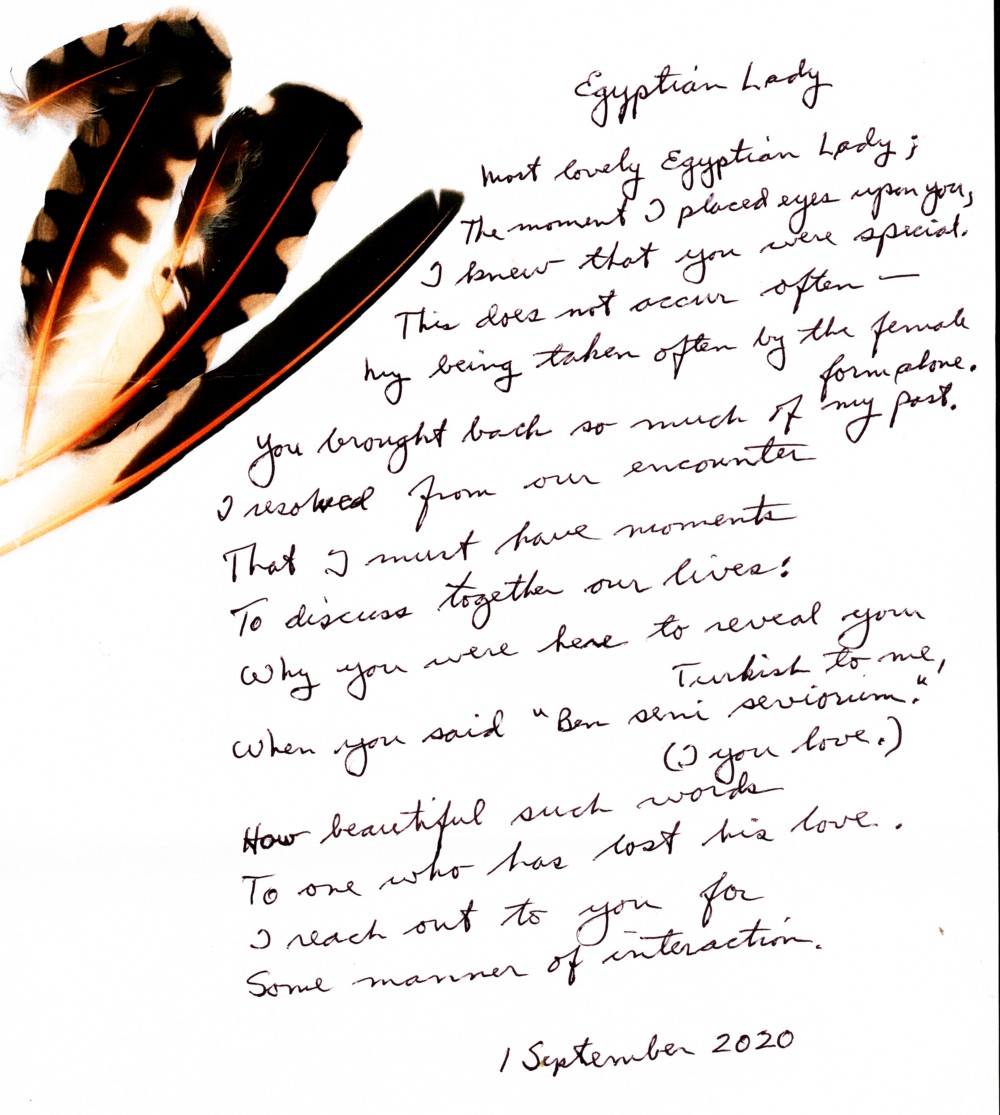 Egyptian Lady
Most lovely Egyptian Lady;
The moment I placed eyes upon you,
I knew that you were special.
This does not occur often —
My being taken often by the female
form alone.
You brought back so much of my past.
I resolved from our encounter
That I must have moments
To discuss together our lives:
Why you were here to reveal your
Turkish to me,
When you said "Ben seni seviorum."
(I you love.)
How beautiful such words
To one who has lost his love.
I reach out to you for
Some manner of interaction.
1 September 2020